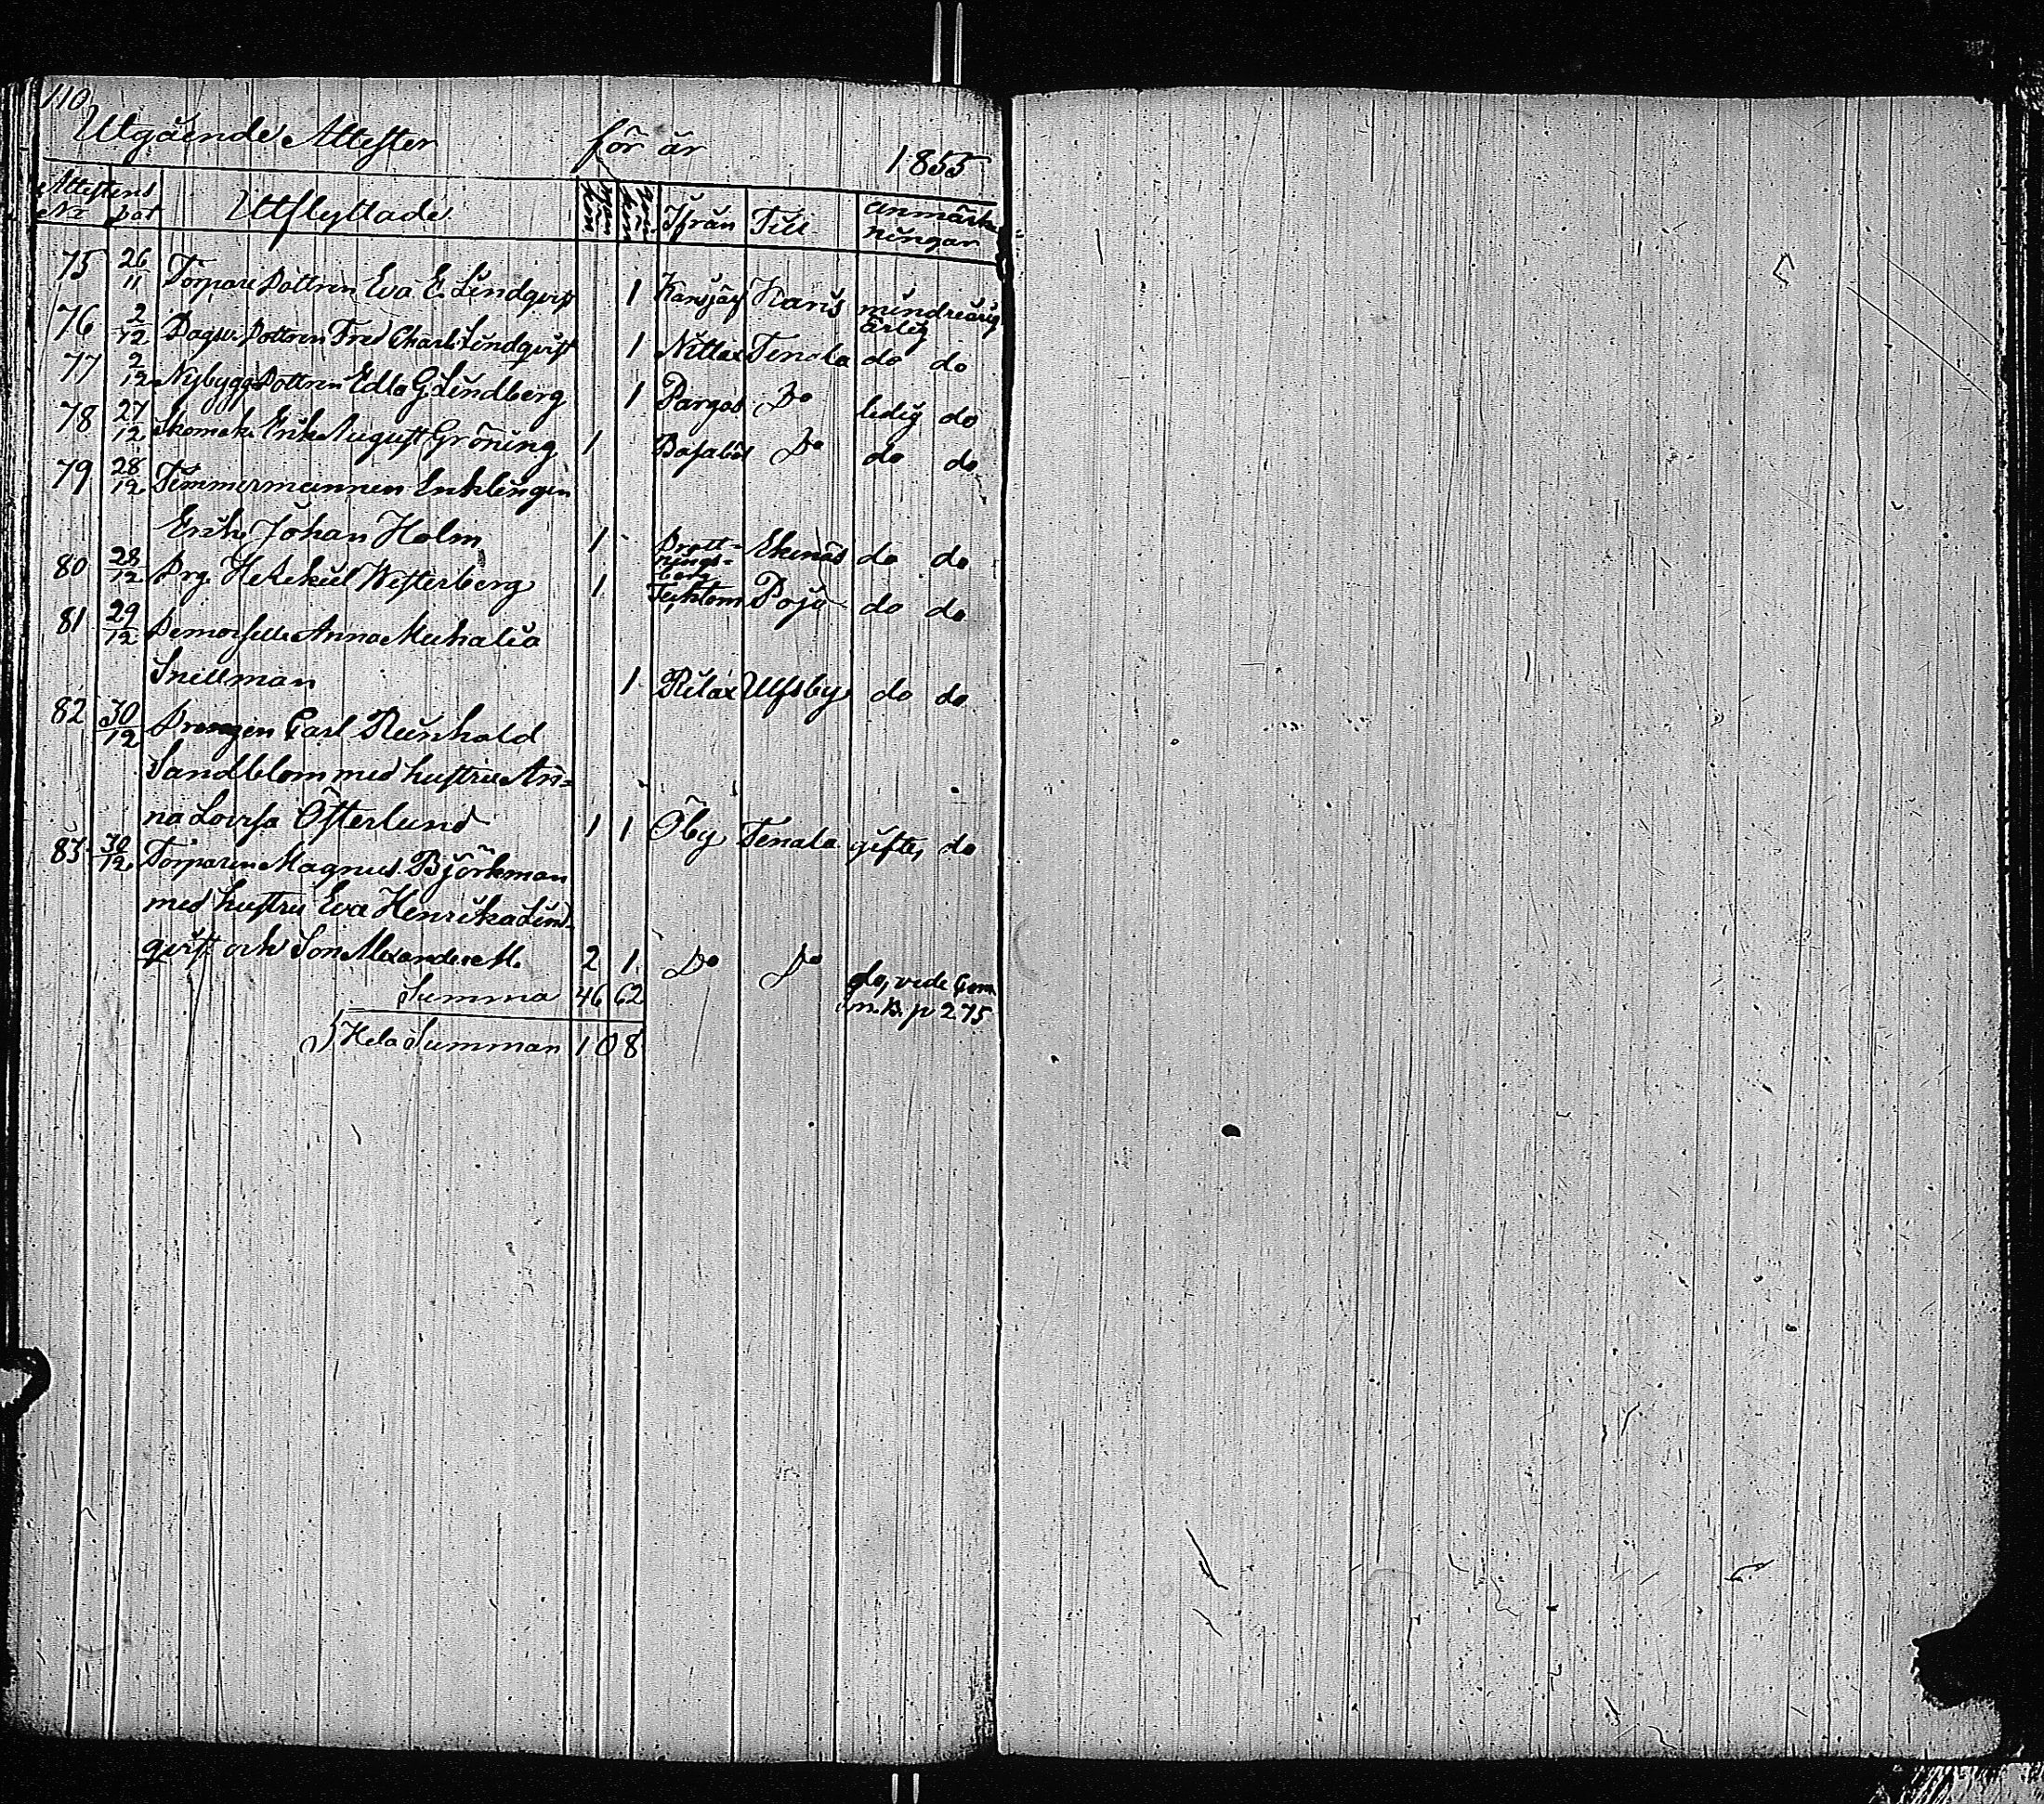 110,
Utgående Attester för år 1855
Attestens
No dat Utflyttade Mankön Qvinkön Ifrån Till Anmärkningar
75 26/11 Torpare Dottren Eva E. Lindqvist 1 Karsjäj Karis minderårig
ärlig
76 2/12 Dagsv. Dottren Fred Charl: Lindqvist 1 Nitlax Tenala do do
77 2/12 Nybygg: Dottren Edla G. Lindberg 1 Pargas Do ledig do
78 27/12 Skomak. Erik August Gröning 1 Do do do
79 28/12 Timmermannen Enklingen
Erik Johan Holm 1 Drott-
nings-
berg Ekenäs do do
80 28/12 Drg. Hesekiel Westerberg 1 Tecktom Pojo do do
81 29/12 Demoiselle Anna Michalia
Snellman 1 Rilax Ulfsby do do
82 30/12 Drengen Carl Reinhold
Sandblom med hustru An=
na Lovisa Österlund 1 1 Öby Tenala gifte, do
83 30/12 Torparen Magnus Björkman
med hustru Eva Henrika Lind-
qvist och Son Alexander M. 2 1 Do Do do, vide Com
m.B. p 275
Summa 46 62
Hela Summan 108